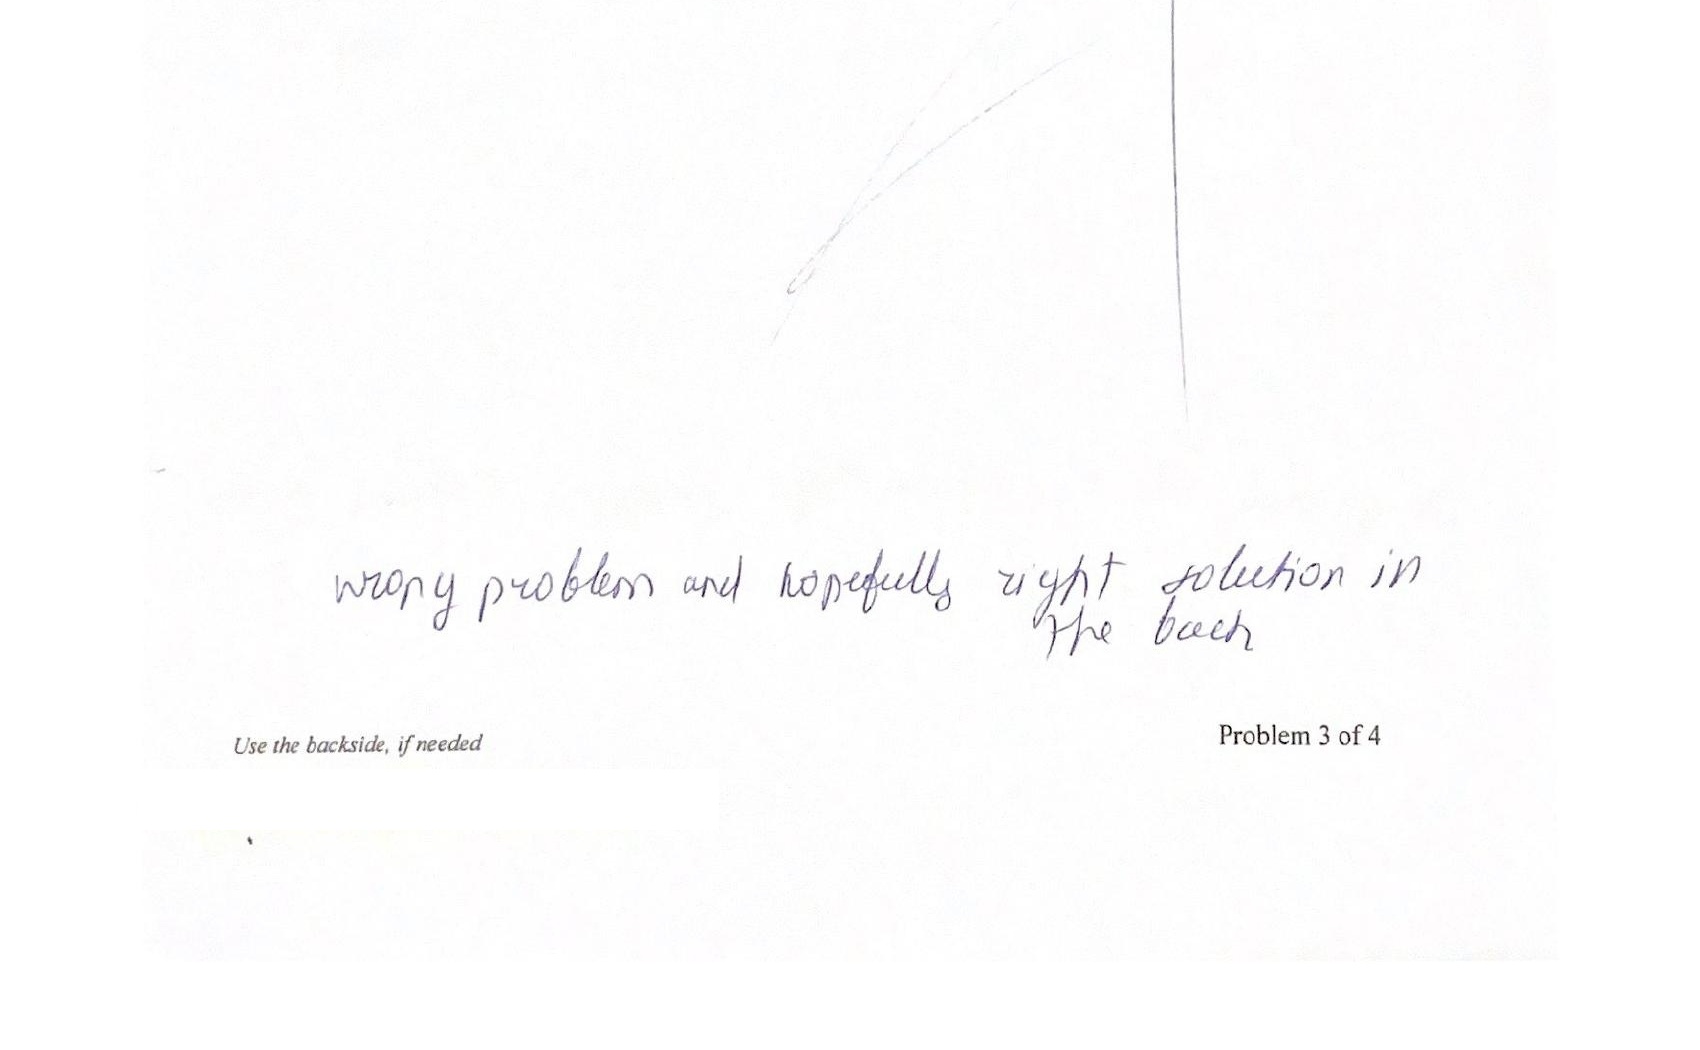 wrong problem and hopefully right solution in
the back
Use the backside, if needed
Problem 3 of 4